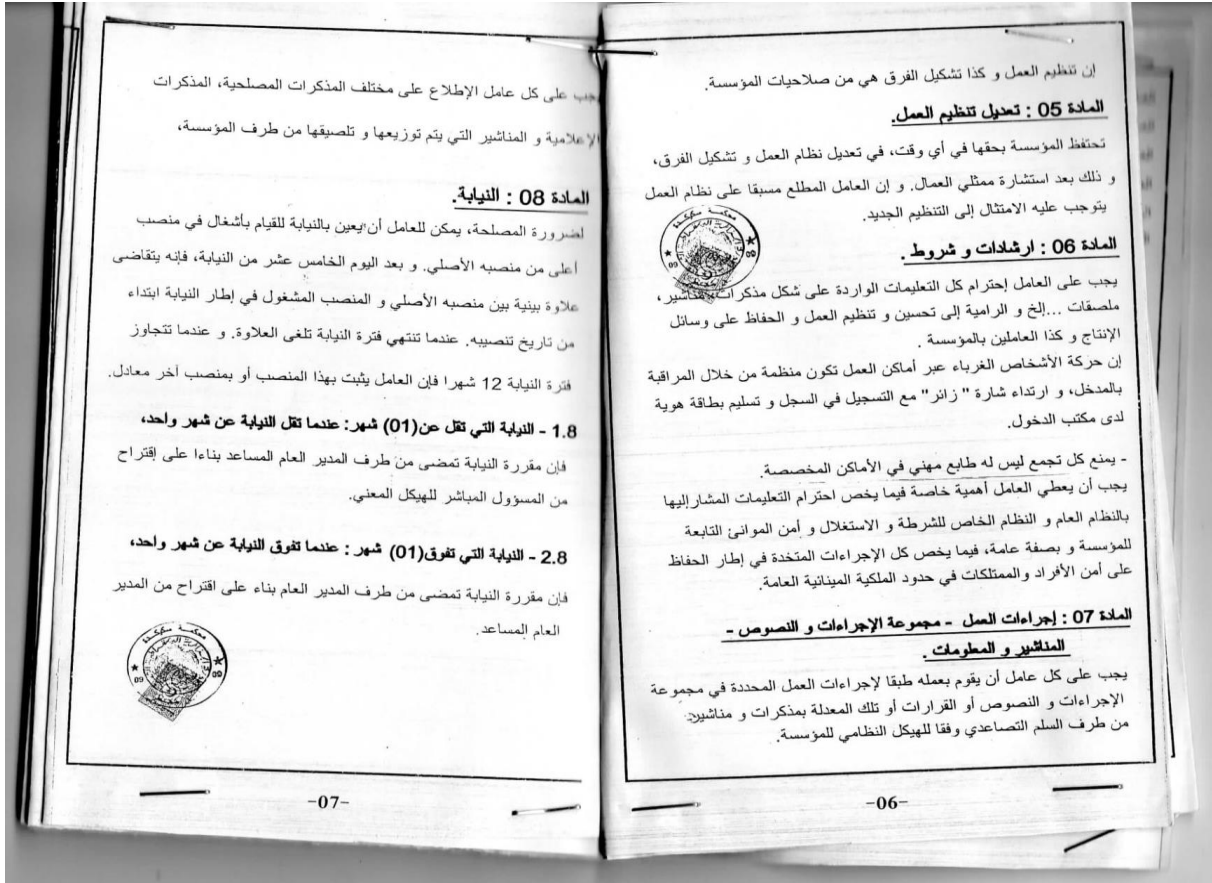 إن تنظيم العمل و كذا تشكيل الفرق هي من صلاحيات المؤسسة.
المادة 05 : تعديل تنظيم العمل.
تحتفظ المؤسسة بحقها في أي وقت، في تعديل نظام العمل و تشكيل الفرق،
و ذلك بعد استشارة ممثلي العمال. و إن العامل المطلع مسبقا على نظام العمل
يتوجب عليه الامتثال إلى التنظيم الجديد.
محكمة سكيكدة
09 09
المادة 06 : ارشادات و شروط .
يجب على العامل إحترام كل التعليمات الواردة على شكل مذكرات، مناشير،
ملصقات ...إلخ و الرامية إلى تحسين و تنظيم العمل و الحفاظ على وسائل
الإنتاج و كذا العاملين بالمؤسسة .
إن حركة الأشخاص الغرباء عبر أماكن العمل تكون منظمة من خلال المراقبة
بالمدخل، و ارتداء شارة " زائر" مع التسجيل في السجل و تسليم بطاقة هوية
لدى مكتب الدخول.
- يمنع كل تجمع ليس له طابع مهني في الأماكن المخصصة.
يجب أن يعطي العامل أهمية خاصة فيما يخص احترام التعليمات المشارإليها
بالنظام العام و النظام الخاص للشرطة و الاستغلال و أمن الموانئ التابعة
للمؤسسة و بصفة عامة، فيما يخص كل الإجراءات المتخدة في إطار الحفاظ
على أمن الأفراد والممتلكات في حدود الملكية المينائية العامة.
المادة 07 : إجراءات العمل - مجموعة الإجراءات و النصوص -
المناشير و المعلومات .
يجب على كل عامل أن يقوم بعمله طبقا لإجراءات العمل المحددة في مجموعة
الإجراءات و النصوص أو القرارات أو تلك المعدلة بمذكرات و مناشير
من طرف السلم التصاعدي وفقا للهيكل النظامي للمؤسسة.
-06-
يجب على كل عامل الإطلاع على مختلف المذكرات المصلحية، المذكرات
الإعلامية و المناشير التي يتم توزيعها و تلصيقها من طرف المؤسسة،
المادة 08 : النيابة.
لضرورة المصلحة، يمكن للعامل أن يعين بالنيابة للقيام بأشغال في منصب
أعلى من منصبه الأصلي. و بعد اليوم الخامس عشر من النيابة، فإنه يتقاضى
علاوة بينية بين منصبه الأصلي و المنصب المشغول في إطار النيابة ابتداء
من تاريخ تنصيبه. عندما تنتهي فترة النيابة تلغى العلاوة. و عندما تتجاوز
فترة النيابة 12 شهرا فإن العامل يثبت بهذا المنصب أو بمنصب آخر معادل.
1.8 - النيابة التي تقل عن(01) شهر: عندما تقل النيابة عن شهر واحد،
فإن مقررة النيابة تمضى من طرف المدير العام المساعد بناءا على إقتراح
من المسؤول المباشر للهيكل المعني.
2.8 - النيابة التي تفوق(01) شهر : عندما تفوق النيابة عن شهر واحد،
فإن مقررة النيابة تمضى من طرف المدير العام بناء على اقتراح من المدير
العام المساعد.
محكمة سكيكدة
09 09
-07-